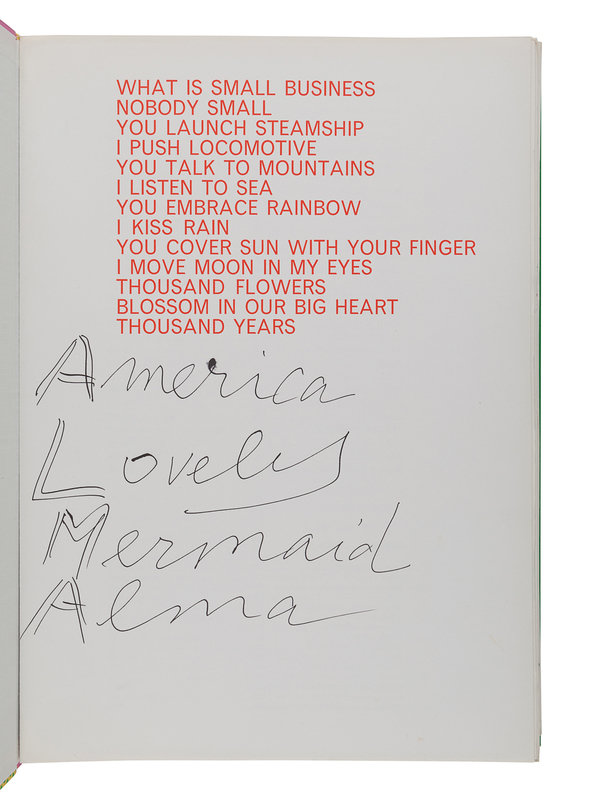 WHAT IS SMALL BUSINESS
NOBODY SMALL
YOU LAUNCH STEAMSHIP
I PUSH LOCOMOTIVE
YOU TALK TO MOUNTAINS
I LISTEN TO SEA
YOU EMBRACE RAINBOW
I KISS RAIN
YOU COVER SUN WITH YOUR FINGER
I MOVE MOON IN MY EYES
THOUSAND FLOWERS
BLOSSOM IN OUR BIG HEART
THOUSAND YEARS
America
Lovely
Mermaid
Alma